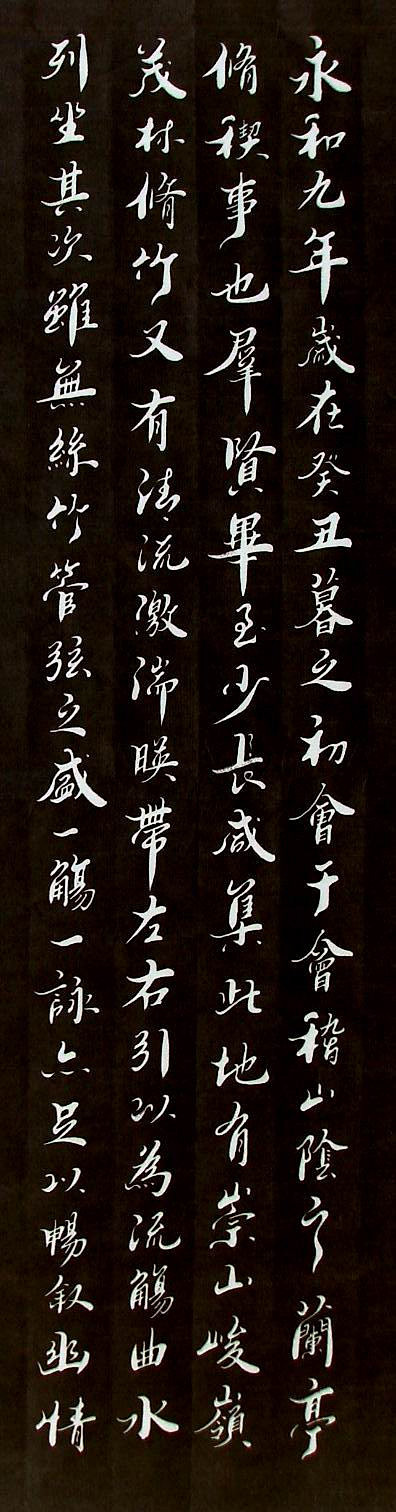 永和九年歲在癸丑暮之初會于會稽山陰之蘭亭
脩稧事也羣賢畢至少長咸集此地有崇山峻嶺
茂林脩竹又有清流激湍暎帶左右引以為流觴曲水
列坐其次雖無絲竹管弦之盛一觴一詠亦足以暢叙幽情